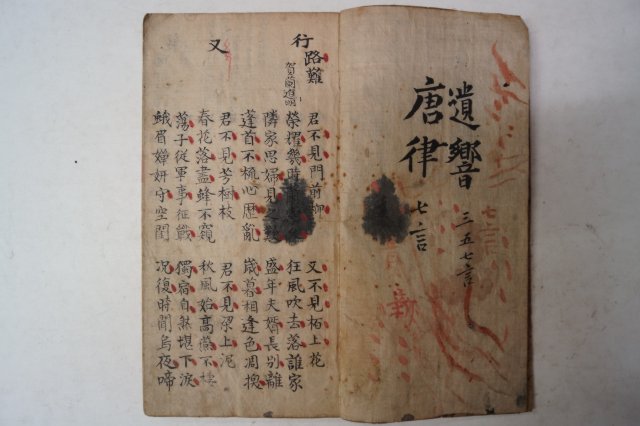 唐律
遺響
七言
三五七言
行路難
賀蘭進明
君不見門前柳
榮耀幾時
又不見栢上花
狂風吹去落誰家
隣家思婦見之歎
蓬首不梳心歷亂
盛年夫婿長別離
歲暮相逢色凋換
又
君不見芳樹枝
春花落盡蜂不窺
君不見梁上泥
秋風始高燕不棲
蕩子從軍事征戰
蛾眉嬋妍守空閨
獨宿自然堪下淚
况復時聞烏夜啼